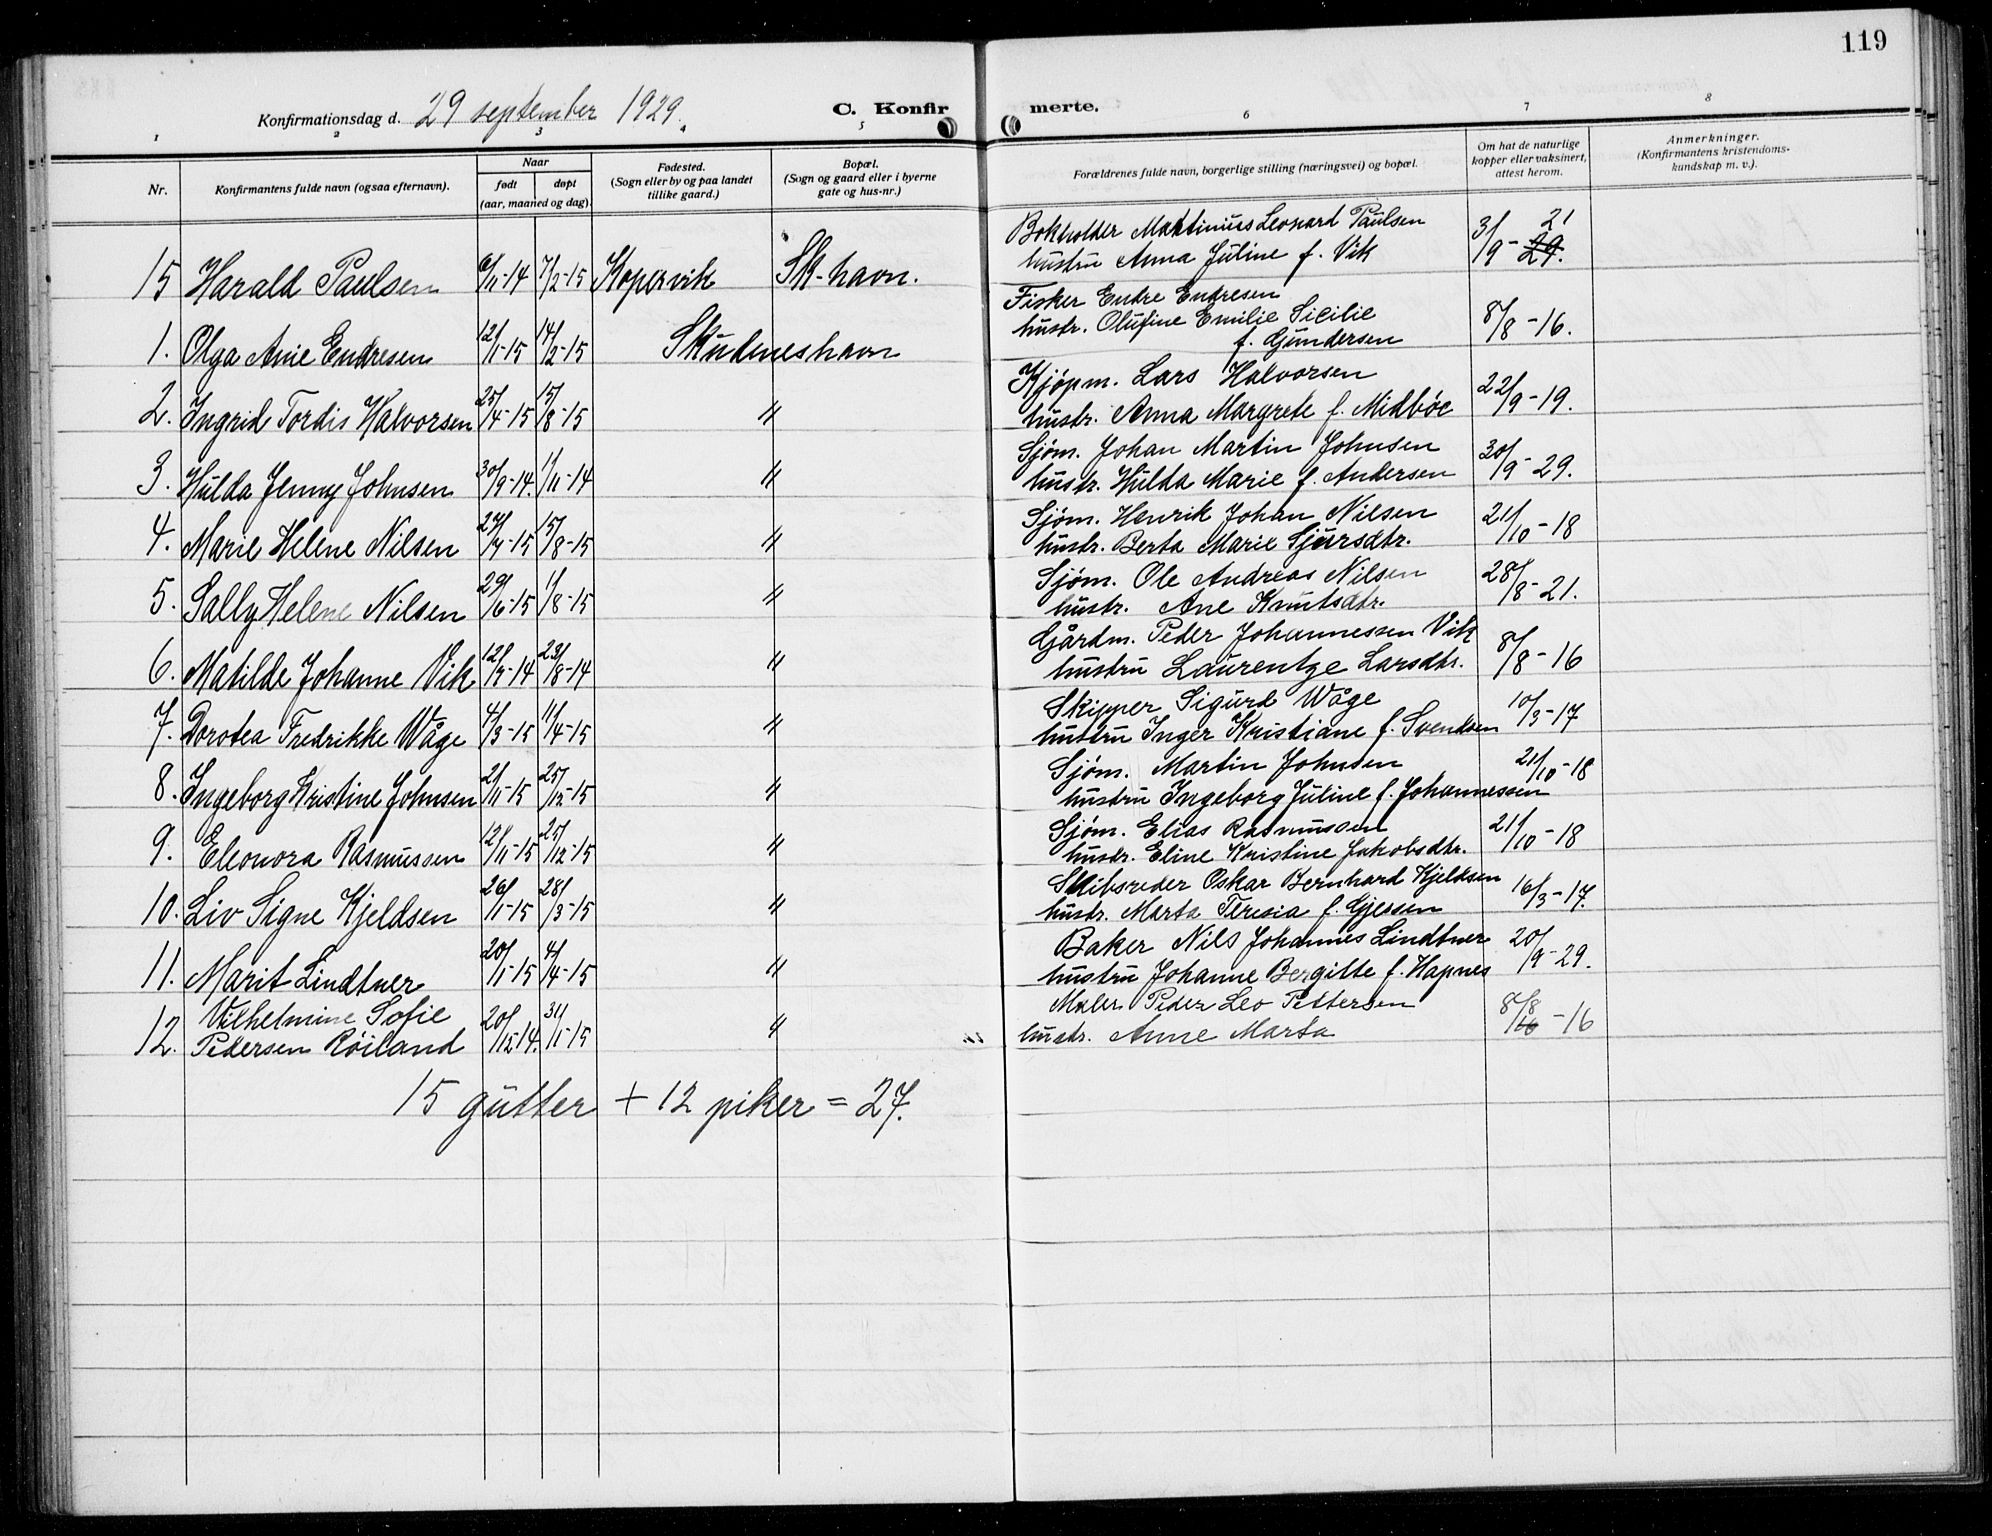 119
Konfirmationsdag d. 29 september 1929. C. Konfirmerte.
1 2 3 4 5 6 7 8
Nr. Konfirmantens fulde navn (ogsaa efternavn). Naar født døpt (aar, maaned og dag). Fødested. (Sogn eller by og paa landet tillike gaard.) Bopæl. (Sogn og gaard eller i byerne gate og hus-nr.) Forældrenes fulde navn, borgerlige stilling (næringsvei) og bopæl. Om hat de naturlige kopper eller vaksinert, attest herom. Anmerkninger. (Konfirmantens kristendomskundskap m. v.).
15 Harald Paulsen 6/11-14 7/2-15 Kopervik Sk-havn. Bokholder Martinius Leonard Paulsen
hustru Anna Juline f. Vik 3/9-29. 21
1. Olga Anie Endresen 12/1-15 14/2-15 Skudeneshavn Fisker Endre Endresen
hustr. Olufine Emilie Sicilie
f. Gundersen 8/8-16.
2. Ingrid Tordis Halvorsen 25/4-15 15/8-15 " Kjøpm. Lars Halvorsen
hustr. Anna Margrete f. Midbøe 22/9-19.
3. Hulda Jenny Johnsen 30/9-14. 1/11-14 " Sjøm. Johan Martin Johnsen
hustr. Hulda Marie f. Andersen 30/9-29.
4. Marie Helene Nilsen 15/8-15 " Sjøm. Henrik Johan Nilsen
hustr. Berta Marie Sjursdtr. 21/10-18
5. Sally Helene Nilsen 29/6-15 1/8-15 " Sjøm. Ole Andreas Nilsen
hustr. Ane Knutsdtr. 28/8-21.
6. Matilde Johanne Vik 12/7-14 23/8-14 " Gårdm. Peder Johannessen Vik
hustru Laurentze Larsdtr. 8/8-16
7. Dorotea Fredrikke Våge 4/3-15 11/4-15 " Skipper Sigurd Våge
hustru Inger Kristiane f. Svendsen 10/3-17
8. Ingeborg Kristine Johnsen 2/11-15 25/12-15 " Sjøm. Martin Johnsen
hustru Ingeborg Juline f. Johannessen 21/10-18
9. Eleonora Rasmussen 12/11-15 25/12-15 " Sjøm. Elias Rasmussen
hustr. Eline Kristine Jakobsdtr. 21/10-18
10. Liv Signe Kjeldsen 26/1-15 28/3-15 " Skibsreder Oskar Bernhard Kjeldsen
hustr. Marta Teresia f. Gjessen 16/3-17.
11. Marit Lindtner 20/1-15 4/4-15 " Baker Nils Johannes Lindtner
hustru Johanne Bergitte f. Hapnes 20/9-29.
12. Vilhelmine Sofie
Pedersen Røiland 20/12 14. 31/1-15 " Maler Peder Leo Pettersen
hustr. Anne Marta 8/8-16
15 gutter + 12 piker = 27.